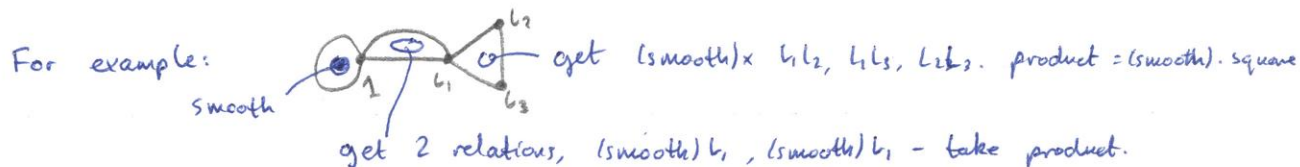 For example:
smooth
1
L₁
L₂
L₃
get (smooth)× L₁L₂, L₁L₃, L₂L₃. product = (smooth). square
get 2 relations, (smooth) L₁, (smooth) L₁ - take product.